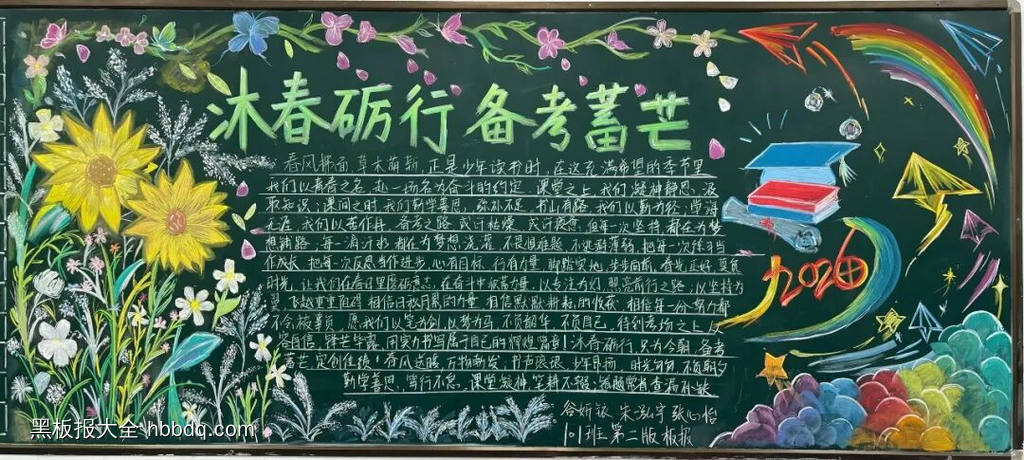 沐春砺行 备考蓄芒
春风拂面 草木萌新,正是少年读书时,在这充满希望的季节里
我们以青春之名,赴一场名为奋斗的约定,课堂之上,我们凝神静思,汲
取知识;课间之时,我们勤学善思,弥补不足,书山有路,我们以勤为径;学海
无涯,我们以苦作舟,备考之路,或许枯燥,或许疲惫,但每一次坚持,都在为梦
想铺路;每一滴汗水,都在为梦想浇灌,不畏惧难题,不 把每一次练习当
作成长,把每一次反思当作进步,心有目标,行有力量,脚踏实地,步步向前,春光正好,莫负
时光,让我们在春日里磨砺意志,在奋斗中积蓄力量,以专注为灯,照亮前行之路,以坚持为
翼,飞越重重阻碍,相信日积月累的力量,相信默默耕耘的收获,相信每一份努力都
不会被辜负,愿我们以笔为剑,以梦为马,不负韶华,不负自己,待到考场之上,
各自信,锋芒毕露,用实力书写属于自己的辉煌篇章!沐春砺行,只为今朝,备考
蓄芒,定创佳绩!春风送暖,万物勃发,书声琅琅,少年昂扬,时光匆匆,不负朝夕
勤学善思,笃行不怠,课堂凝神,笔耕不辍,
2026
宋泓宇 张心怡
101班 第二版 板报
黑板报大全 hbbdq.com